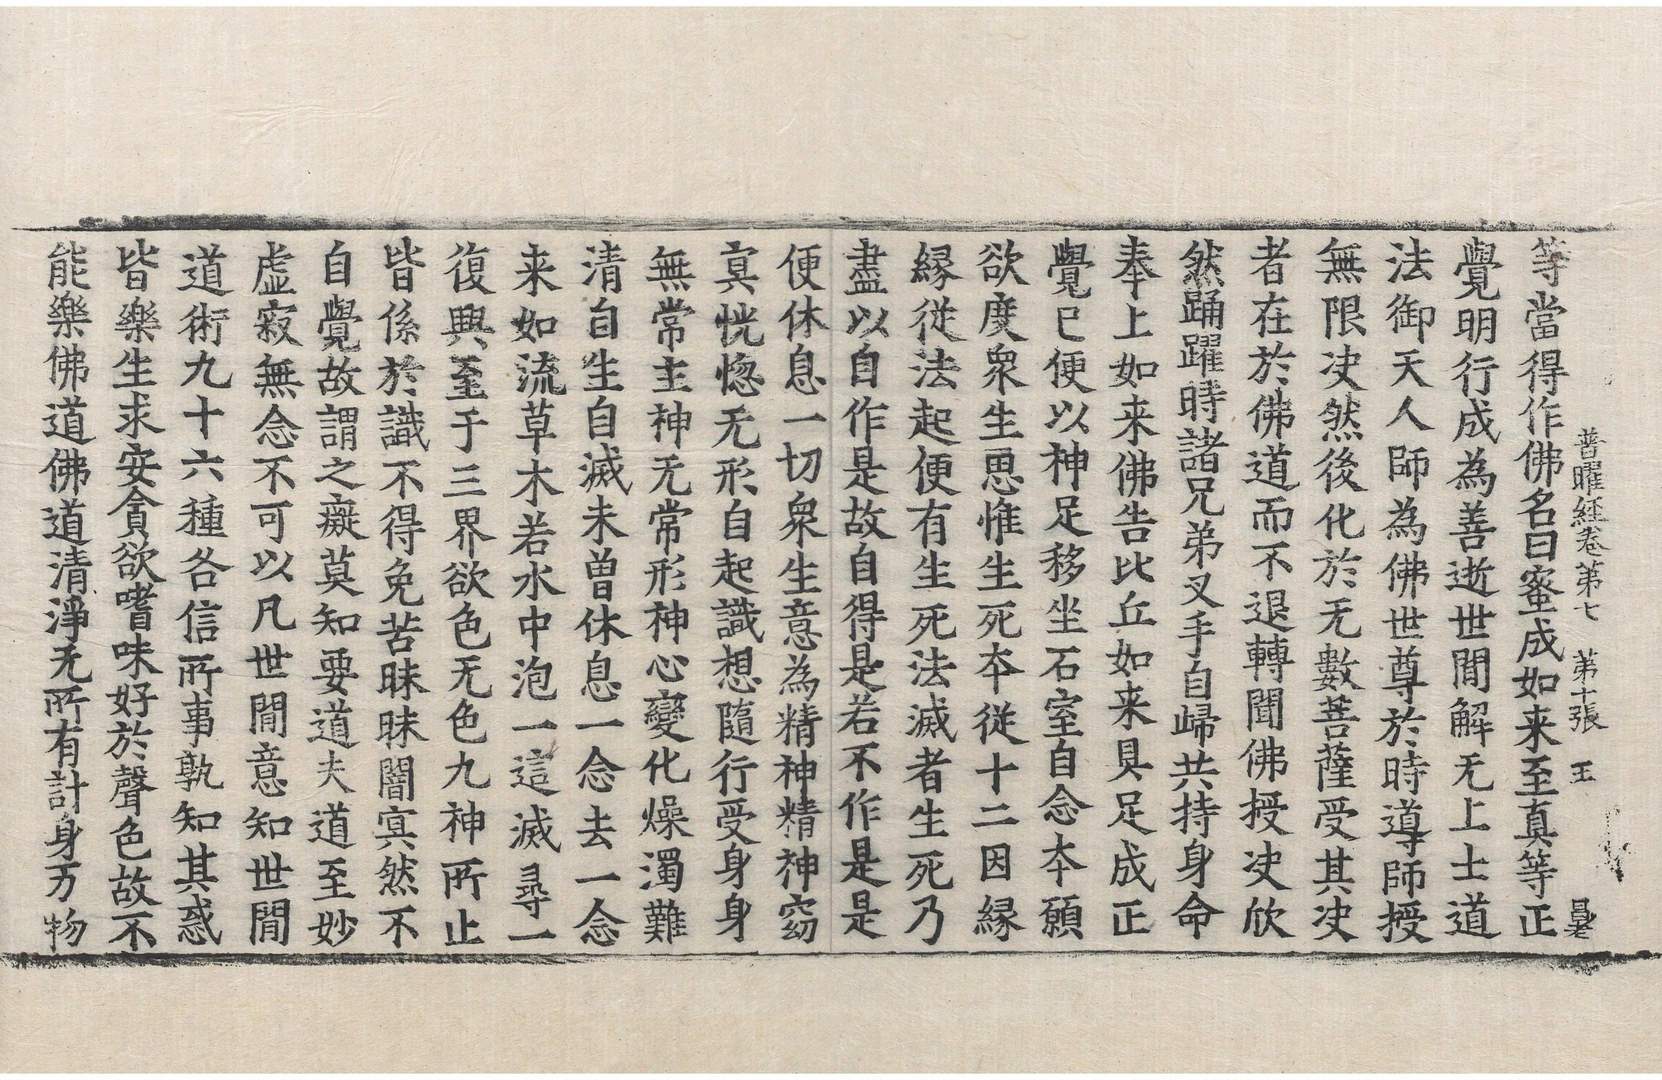 普曜経巻第七 第十張 王
等當得作佛名曰蜜成如来至真等正
覺明行成為善逝世間解无上士道
法御天人師為佛世尊於時導師授
無限决然後化於无數菩薩受其决
者在於佛道而不退轉聞佛授决欣
然踊躍時諸兄弟叉手自歸共持身命
奉上如来佛告比丘如来具足成正
覺已便以神足移坐石室自念本願
欲度衆生思惟生死本從十二因緣
緣從法起便有生死法滅者生死乃
盡以自作是故自得是若不作是是
便休息一切衆生意為精神精神窈
冥恍惚无形自起識想隨行受身身
無常主神无常形神心變化燥濁難
清自生自滅未曽休息一念去一念
来如流草木若水中泡一這滅尋一
復興至于三界欲色无色九神所止
皆係於識不得免苦昧昧闇冥然不
自覺故謂之癡莫知要道夫道至妙
虛寂無念不可以凡世間意知世間
道術九十六種各信所事孰知其惑
皆樂生求安貪欲嗜味好於聲色故不
能樂佛道佛道清淨无所有計身万物